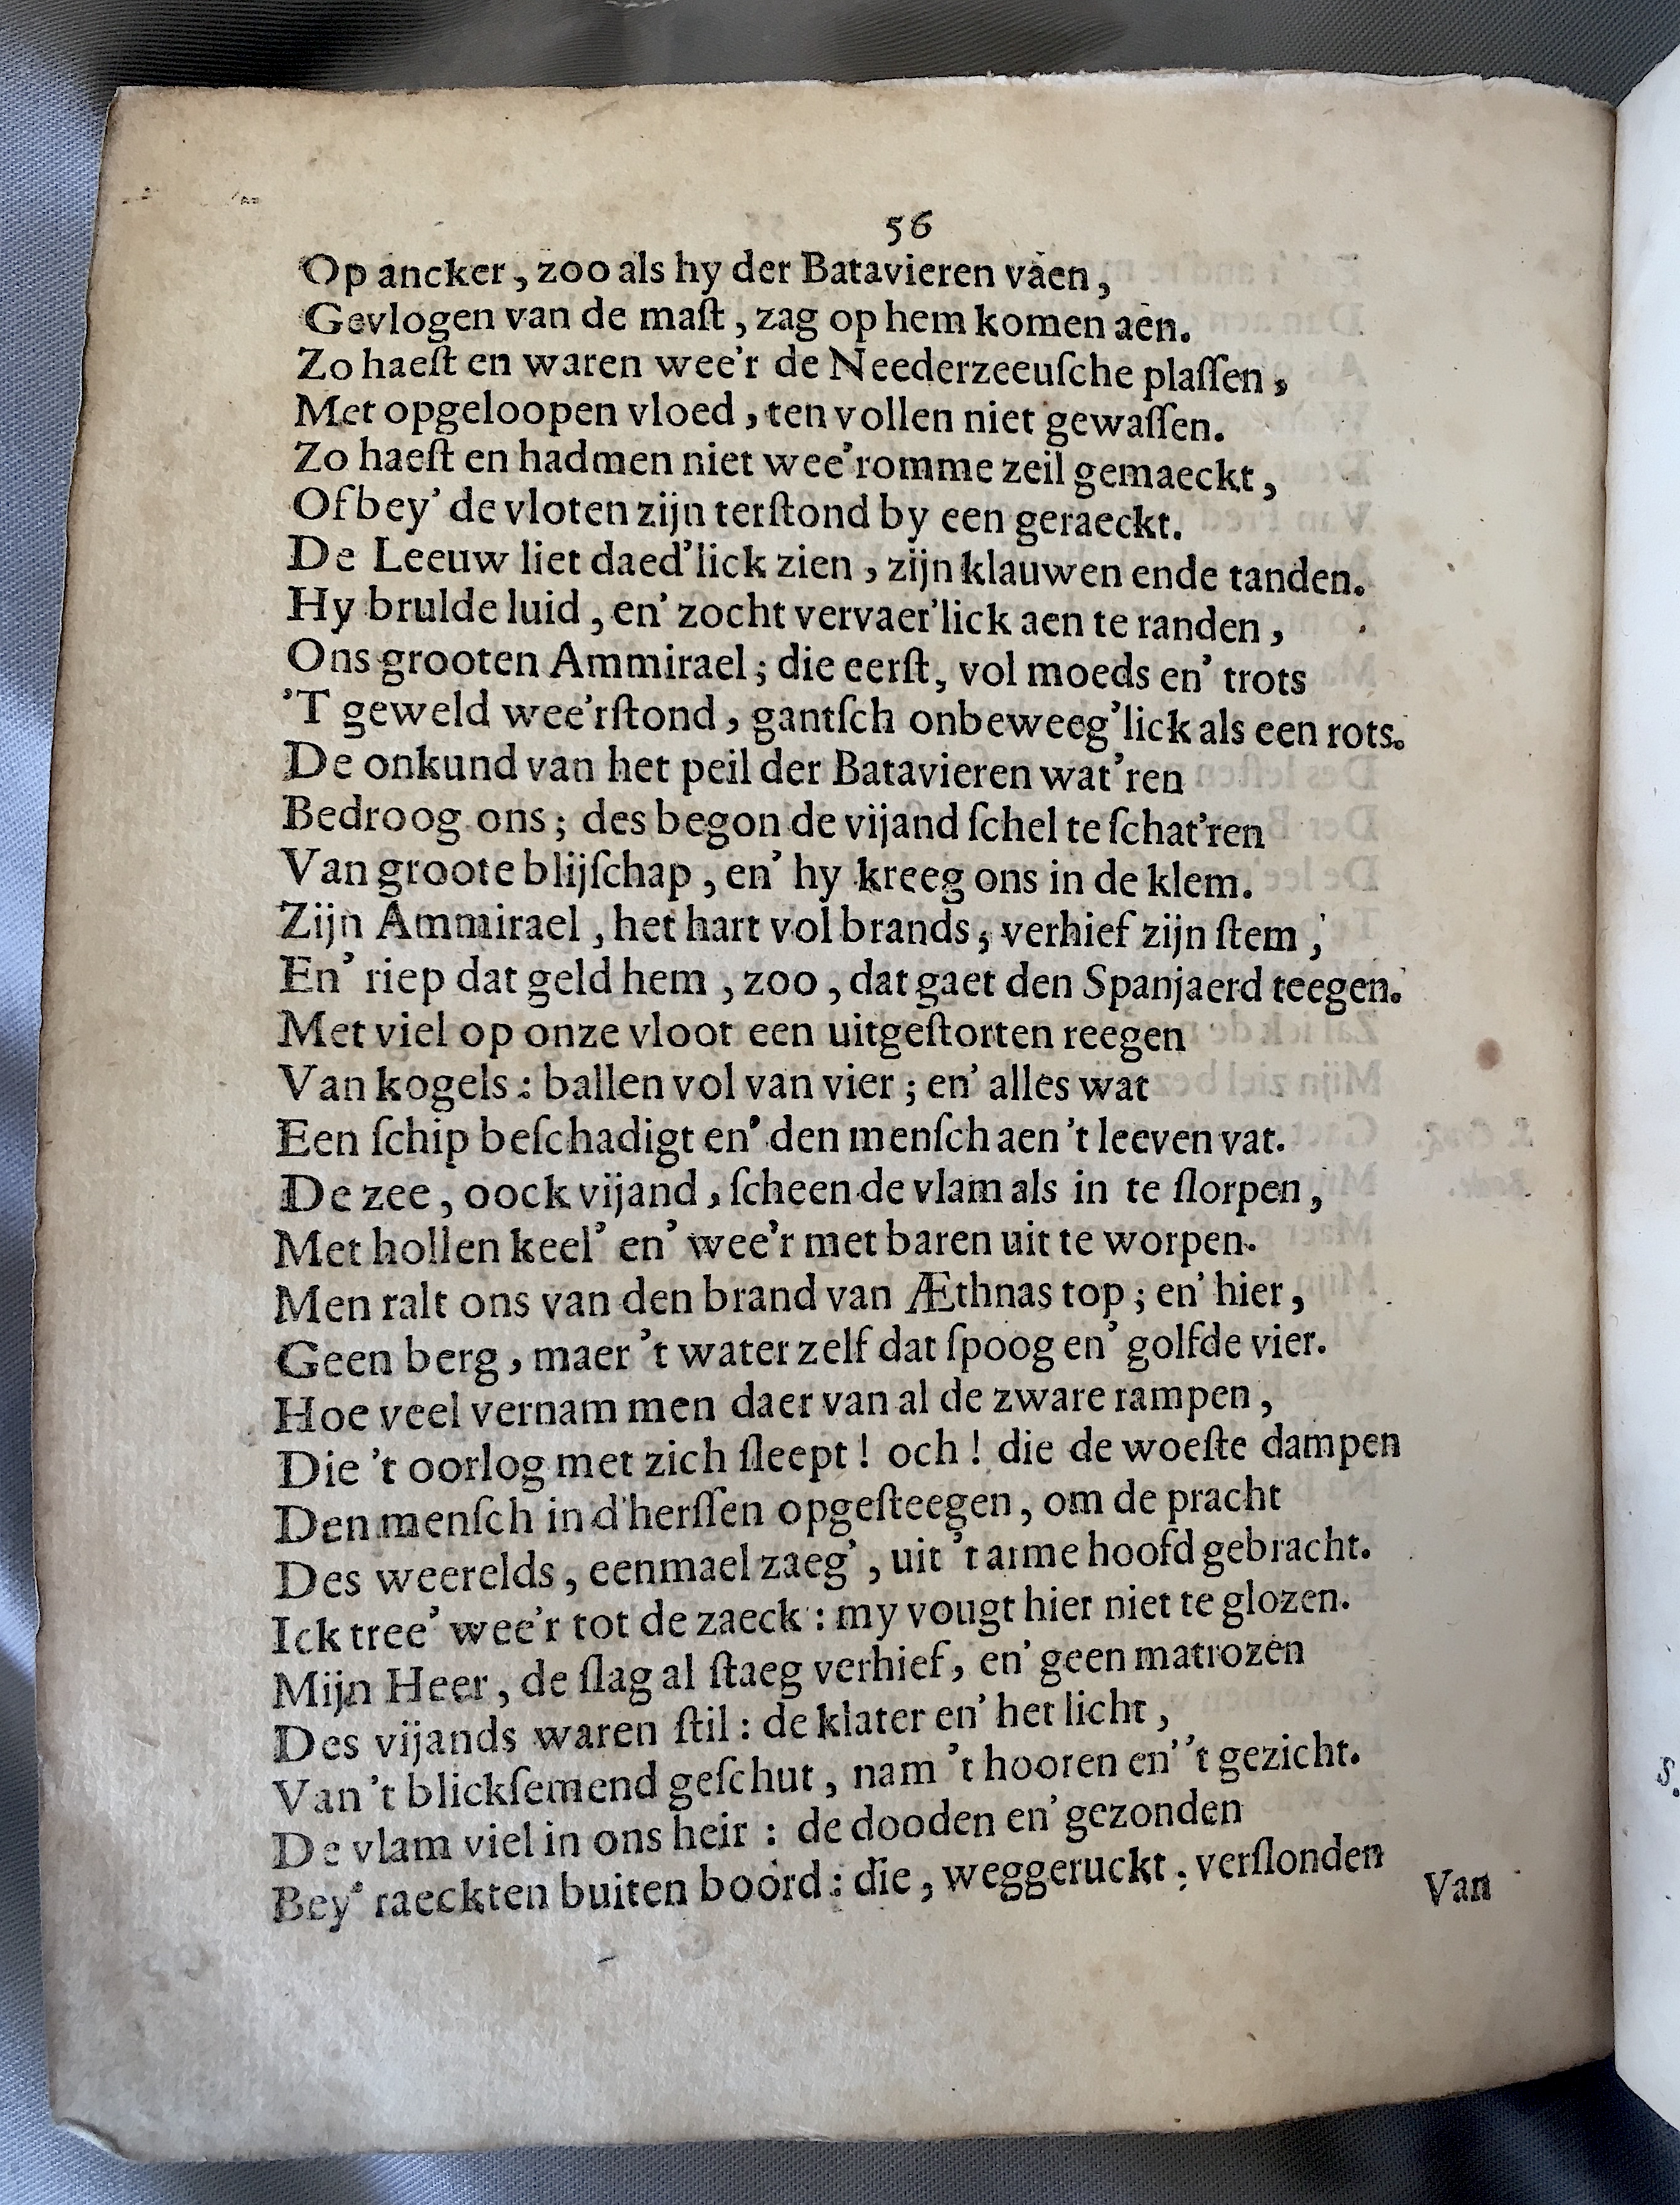 56
Op ancker, zoo als hy der Batavieren vaen,
Gevlogen van de maſt, zag op hem komen aen.
Zo haeſt en waren wee'r de Neederzeeuſche plaſſen,
Met opgeloopen vloed, ten vollen niet gewaſſen.
Zo haeſt en hadmen niet wee'romme zeil gemaeckt,
Of bey' de vloten zijn terſtond by een geraeckt.
De Leeuw liet daed'lick zien, zijn klauwen ende tanden.
Hy brulde luid, en' zocht vervaer'lick aen te randen,
Ons grooten Ammirael; die eerſt, vol moeds en' trots
'T geweld wee'rſtond, gantſch onbeweeg'lick als een rots.
De onkund van het peil der Batavieren wat'ren
Bedroog ons; des begon de vijand ſchel te ſchat'ren
Van groote blijſchap, en' hy kreeg ons in de klem.
Zijn Ammirael, het hart vol brands, verhief zijn ſtem,
En' riep dat geld hem, zoo, dat gaet den Spanjaerd teegen.
Met viel op onze vloot een uitgeſtorten reegen
Van kogels: ballen vol van vier; en' alles wat
Een ſchip beſchadigt en' den menſch aen 't leeven vat.
De zee, oock vijand, ſcheen de vlam als in te ſlorpen,
Met hollen keel' en' wee'r met baren uit te worpen.
Men ralt ons van den brand van Æthnas top; en' hier,
Geen berg, maer 't water zelf dat ſpoog en' golfde vier.
Hoe veel vernam men daer van al de zware rampen,
Die 't oorlog met zich ſleept! och! die de woeſte dampen
Den menſch in d'herſſen opgeſteegen, om de pracht
Des weerelds, eenmael zaeg', uit 't arme hoofd gebracht.
Ick tree' wee'r tot de zaeck: my vougt hier niet te glozen.
Mijn Heer, de ſlag al ſtaeg verhief, en' geen matrozen
Des vijands waren ſtil: de klater en' het licht,
Van 't blickſemend geſchut, nam 't hooren en' 't gezicht.
De vlam viel in ons heir: de dooden en' gezonden
Bey' raeckten buiten boord: die, weggeruckt, verſlonden
Van